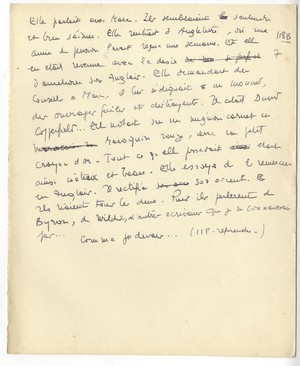 Elle parlait avec Marc. Ils semblaient s'entendre
et bien s'aimer. Elle rentrait d'Angleterre, où une
amie de pension l'avait reçue une semaine. Et elle
118B
en était revenue avec le désir
7
d'améliorer son anglais. Elle demandait des
conseils à Marc. Il lui indiquait un manuel,
des ouvrages faciles et distrayants. Il citait David
Copperfield... Elle notait sur un mignon carnet en
maroquin rouge, avec un petit
crayon d'or. Tout ce qu'elle possédait était
ainsi coûteux et beau. Elle essaya de le remercier
en anglais. Il rectifia son accent. Et
ils riaient tous les deux. Puis ils parlèrent de
Byron, de Wilde, d'autres écrivains que je ne connaissais
pas...
Comme je devais... (IIP-reprendre-)